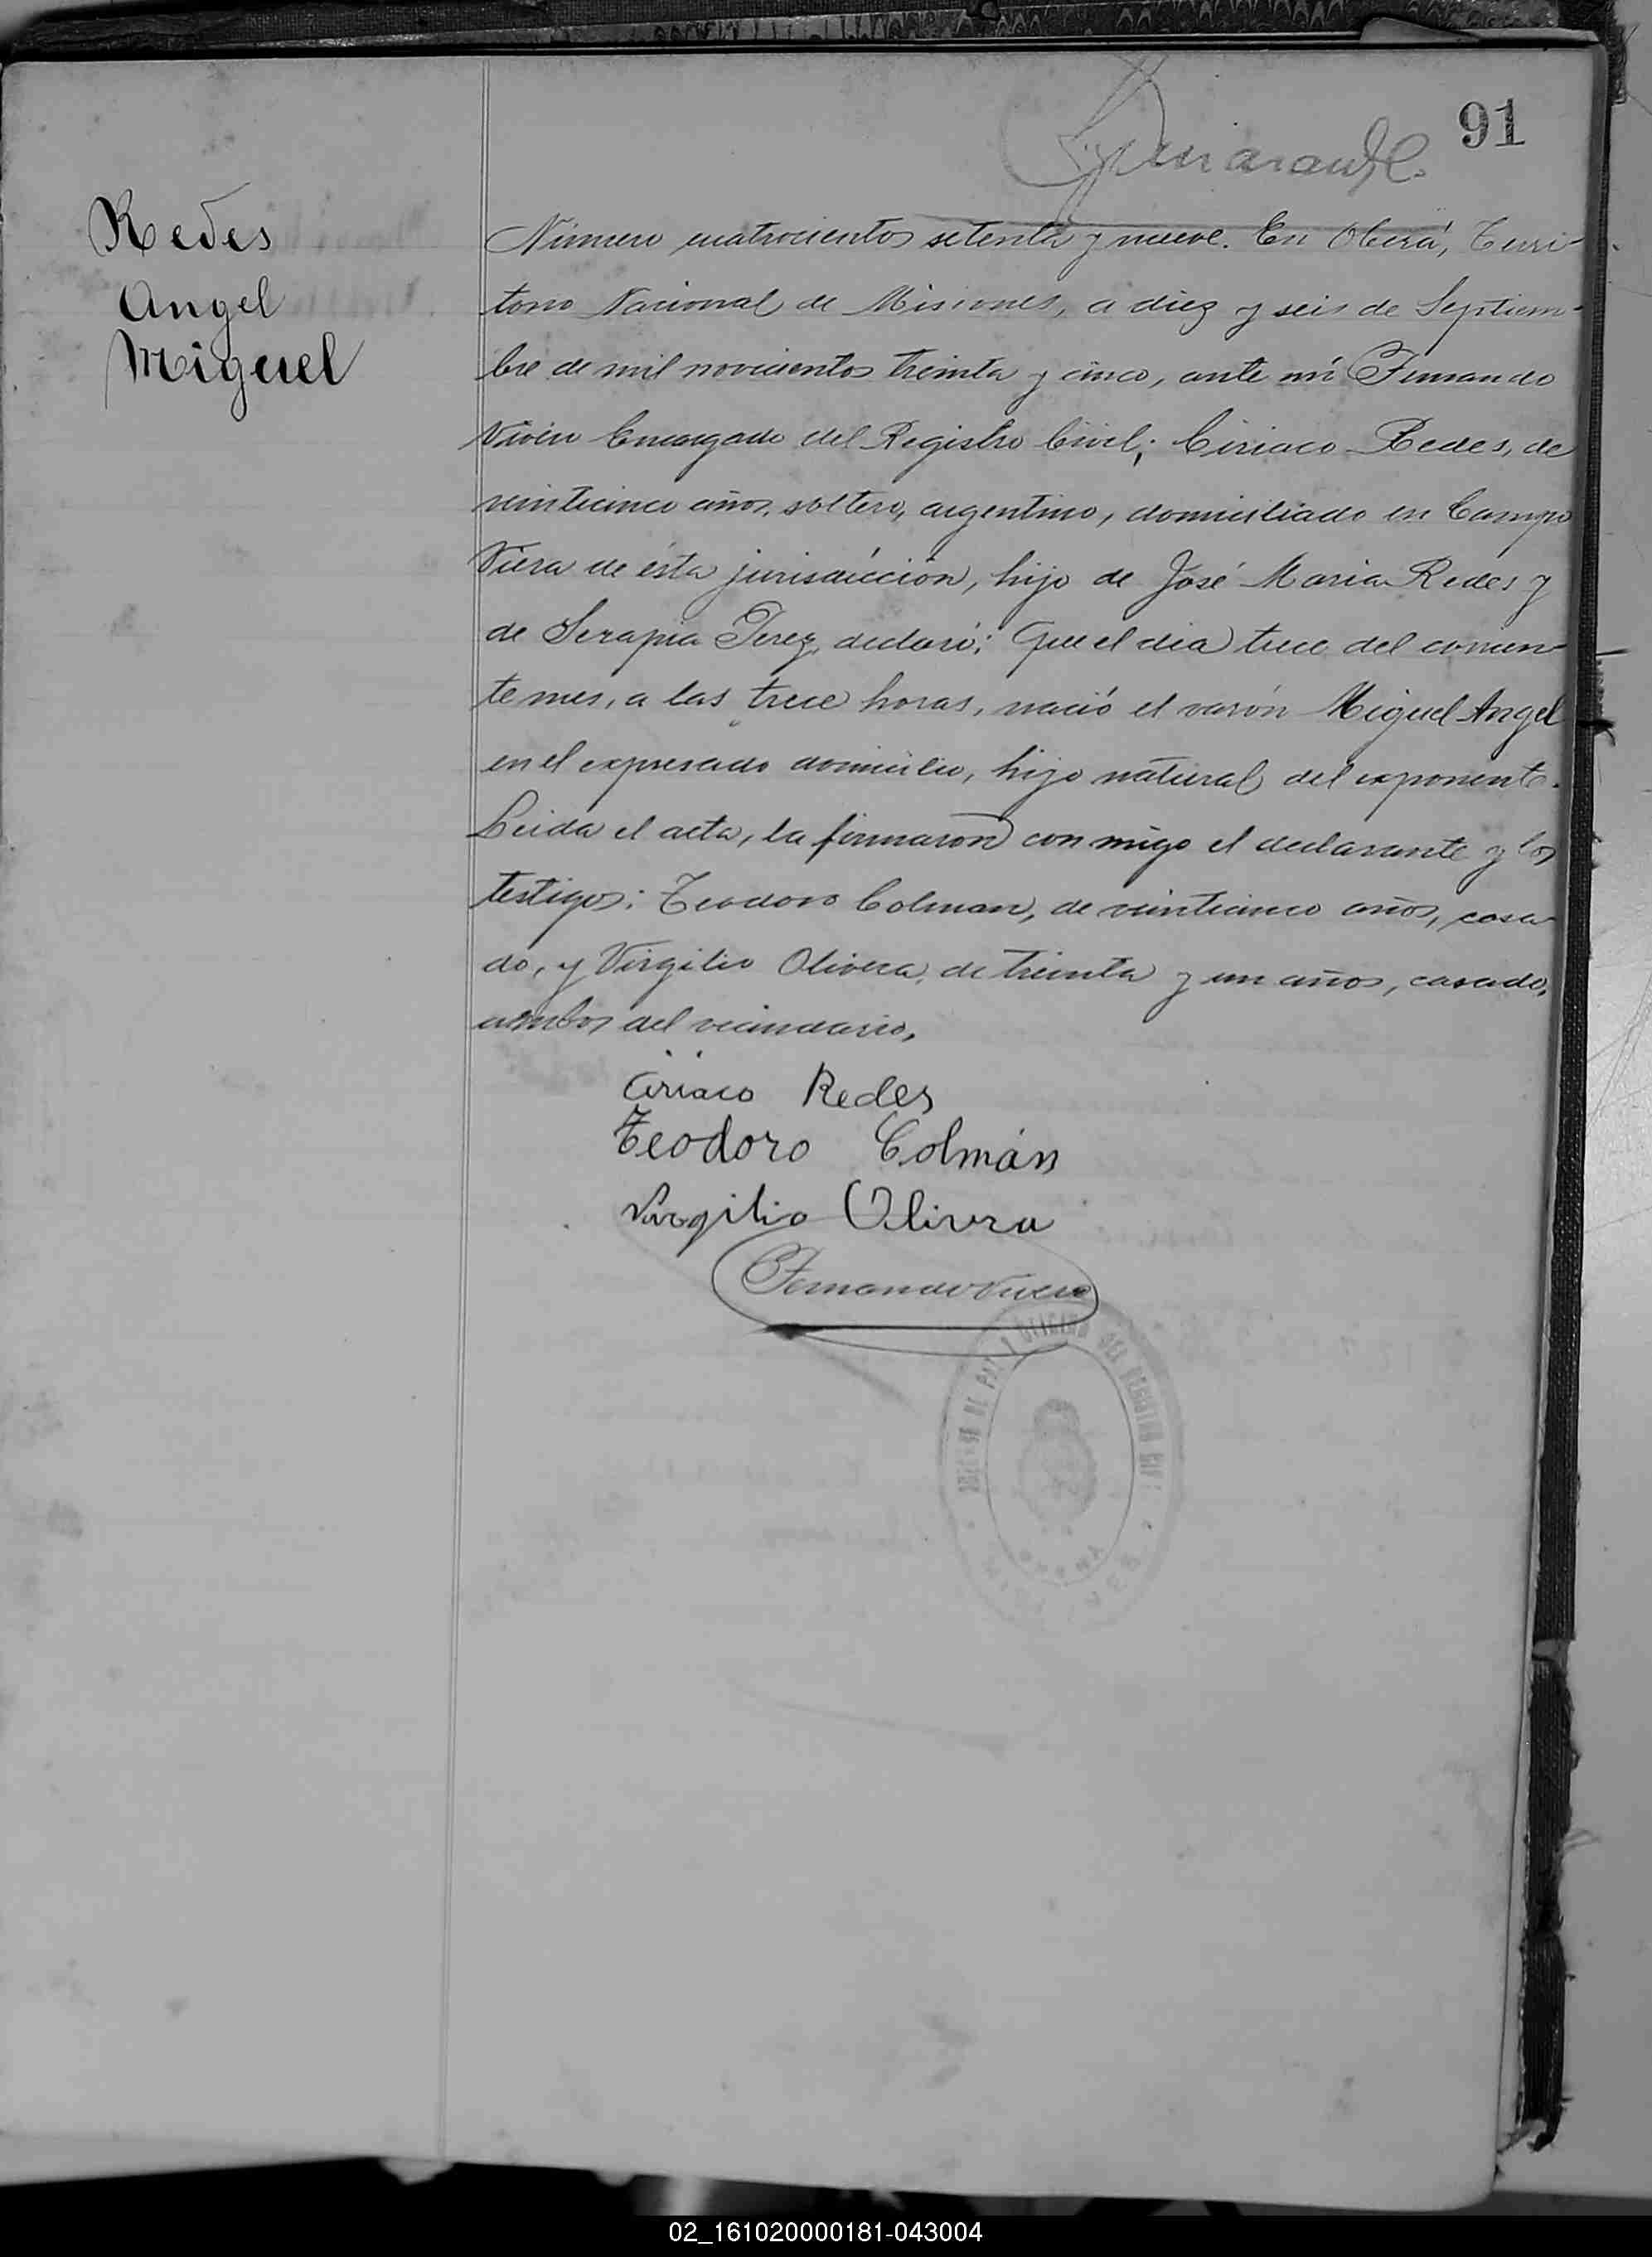 91
Redes
Angel
Miguel
Número cuatrocientos setenta y nueve. En Oberá, Terri-
torio Nacional de Misiones, a diez y seis de Septiem-
bre de mil novecientos treinta y cinco, ante mí Fernando
Encargado del Registro Civil; Ciriaco Redes, de
veinticinco años, soltero, argentino, domiciliado en Campo
Viera de ésta jurisdicción, hijo de José Maria Redes y
de Serapia Perez, declaró: Que el dia trece del corrien-
te mes, a las trece horas, nació el varón Miguel Angel
en el expresado domicilio, hijo natural del exponente.
Leida el acta, la firmaron conmigo el declarante y los
testigos: Teodoro Colman, de veinticinco años, casa-
do, y Virgilio Olivera, de treinta y un años, casado,
ambos del vecindario.
Ciriaco Redes
Teodoro Colmán
Virgilio Olivra
Fernando
DE PAZ Y OFICINA DEL REGISTRO CIVIL
02_161020000181-043004